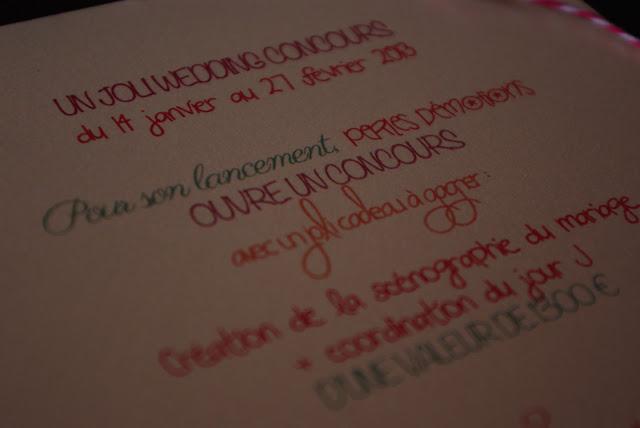 UN JOLI WEDDING CONCOURS
du 14 janvier au 27 février 2013
Pour son lancement, PERLES DÉMOTIONS
OUVRE UN CONCOURS
avec un joli cadeau à gagner :
Création de la scénographie du mariage
+ coordination du jour J
D'UNE VALEUR DE 1500 €